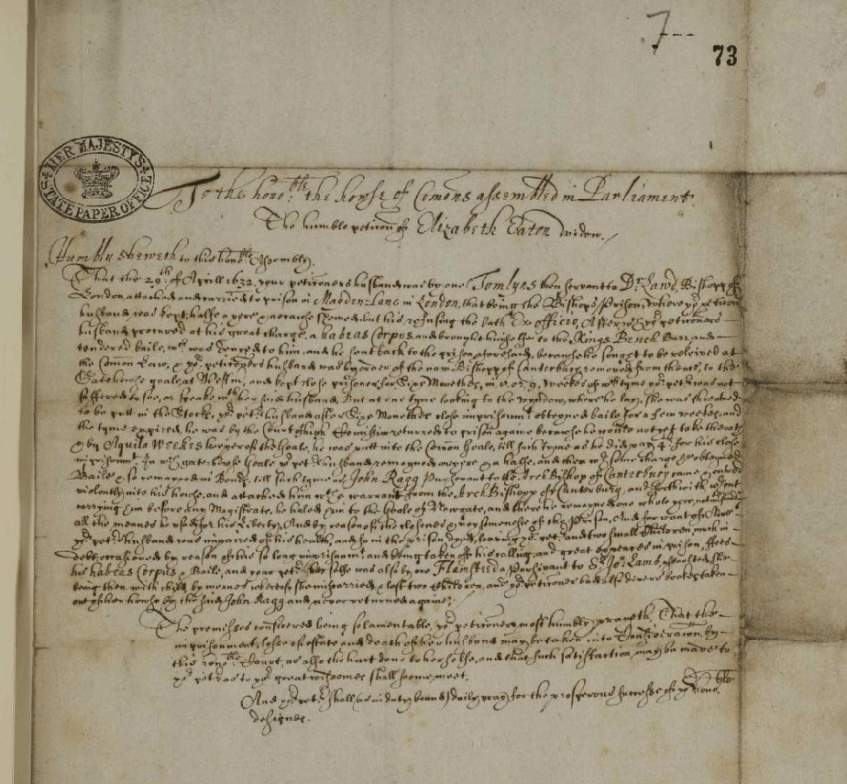 7--
73
HER MAJESTYS STATE PAPER OFFICE
To the honoble: the howse of Comons assembled in Parliament.
The humble petition of Elizabeth Eaton widow./
Humbly sheweth to this honoble: Assembly.
That the 29th of Aprill 1632, your petitioners husband was by one Tomlyns then servant to Dr Lawd Bishopp of
London attached and carried to prison in Maiden-Lane in London, that being the Bishops prison, where yor petitioners
husband was kept halfe a yere & because hee refusing the Oath Ex officio, After yor petitioners
husband procured at his great charge a habeas Corpus and brought himselfe to the Kings Bench Barr, and
tendered baile, wch was denyed to him, and he sent back to the prison aforesaid, because he sought to be releived at
the Comon Law, & yor petitioners husband was by order of the now Bishopp of Canterbury removed from thence, to the
Gatehowse goale, at Westmr, and kept close prisoner for Sixe Monethes, in wch weekes of wch tyme yor petr was not
suffered to see, or speake wth her said husband. But at one tyme looking to the window, where he lay, she was threatned
to be putt in the Stocks, yor petrs husband after Sixe Monethes close imprisonmt obteyned baile for a few weekes, and
the tyme expired, he was by the Court of high Comission returned to prison againe because he would not yet take the oath
& by Aquila Weekes keeper of the Goale, he was putt into the Comon Goale, till such tyme as he did pay for his close
imprisonmt. In wch gate-howse Goale yor petrs husband remayned a yere & a halfe, and then wth some charge he obteyned
Baile & so remayned in Bond, till such tyme as John Ragg Pursivant to the Arch Bishop of Canterbury came & entred
violently into his house, and attached him wth a warrant from the Arch Bishopp of Canterbury, and forthwith without
carrying him before any Magistrate, he haled him to the Goale of Newgate, and there he remayned one whole yere, notwithstanding
all the meanes he used for his liberty. And by reason of the closenes & noysomenesse of the Prison, and for want of
yor petrs husband was impaired of his health, and so in the prison dyed, leaving yor petr and two small Children, much in
debt, occasioned by reason of his so long imprisonmt and being taken off his calling, and great expences in prison, ffees
his habeas Corpus, & Baile, and your petr her selfe was also by one Flamsteed Pursivant to Sr Jo: Lamb, assaulted, she
being then with child, by meanes whereof she miscarried, & lost two Children, and yor petitioner had also divers bookes taken
out of her howse by the said John Ragg and never returned againe;
The premisses considered being so lamentable, yor petitioner most humbly prayeth. That the
imprisonment, losse of estate and death of her husband may be taken into Consideracon by
this honoble Court, as also the hurt done to her selfe, and that such satisfaction, may be made to
yor petr as to yor great wisdomes shall seeme meet.
And yor petr shall (as in duty bound) daily pray for the prosperous successe of yor honoble
designes.